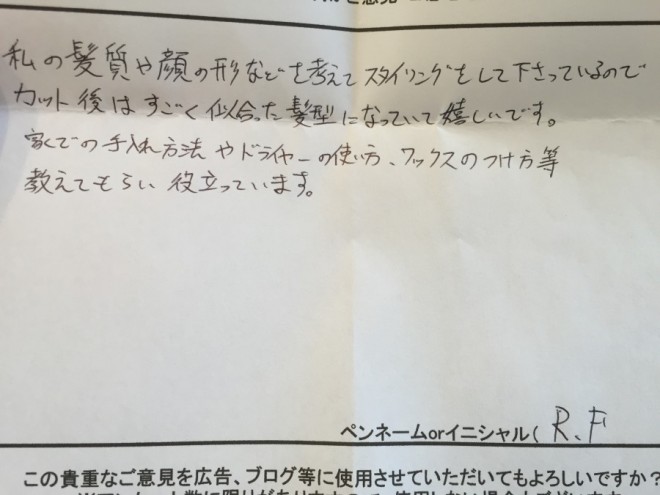 私の髪質や顔の形などを考えてスタイリングをして下さっているので
カット後はすごく似合った髪型になっていて嬉しいです。
家での手入れ方法やドライヤーの使い方、ワックスのつけ方等
教えてもらい役立っています。
ペンネームorイニシャル( R.F
この貴重なご意見を広告、ブログ等に使用させていただいてもよろしいですか?